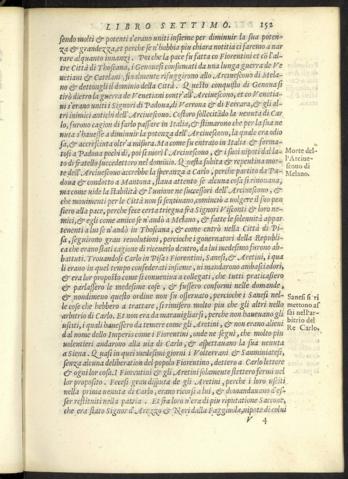 LIBRO SETTIMO. 152
sendo molti & potenti s'erano uniti insieme per diminuir la sua poten-
za & grandezza, et perche se n'habbia piu chiara notitia ci faremo a nar
rare alquanto innanzi. Perche la pace fu fatta co Fiorentini et co l'al-
tre Città di Thoscana, i Genovesi consumati da una lunga guerra de Ve
netiani & Catelani, finalmente rifuggirono allo Arcivescovo di Mela-
no & dettongli il dominio della Città. Questo conquisto di Genovesi
tirò dietro la guerra de Venetiani contr'all'Arcivescovo, et co Venetia
ni s'erano uniti i Signori di Padova, di Verrona & di Ferrara, & gli al
tri inimici antichi dell'Arcivescovo. Costoro sollecitando la venuta di Car
lo, furono cagion di farlo passare in Italia, & stimarono che per la sua ve
nuta s'havesse a diminuir la potenza dell'Arcivescovo, la quale era odio
sa, & accresciuta oltr'a misura. Ma come fu entrato in Italia & ferma-
tosi a Padova pochi dì, poi si morì l'Arcivescovo, & i suoi nipoti di la-
to di fratello succedettono nel dominio. Questa subita & repentina mor
te dell'Arcivescovo accrebbe la speranza a Carlo, perche partito da Pa-
dova & condotto a Mantova, stava attento se alcuna cosa si rinovava,
come vide la stabilità & l'unione ne successori dell'Arcivescovo, &
che movimenti per le Città non si sentivano, cominciò a volgere il suo pen
siero alla pace, perche fece certa triegua fra Signori Visconti & loro ne-
mici, & egli come amico se n'andò a Melano, & fatte le solennità appar
tenenti a lui se n'andò in Thoscana, & come entrò nella Città di Pi-
sa, seguirono gran revolutioni, percioche i governatori della Republi
ca che erano stati cagione di riceverlo dentro, da lui medesimo furono ab-
battuti. Trovandosi Carlo in Pisa i Fiorentini, Sanesi, & Aretini, i qua
li erano in quel tempo confederati insieme, vi mandarono ambasciadori,
& era lor proposito come si conveniva a collegati, che tutti praticassero
& parlassero le medesime cose, & fussero conformi nelle domande,
& nondimeno questo ordine non si osservato, percioche i Sanesi nel-
le cose che hebbero a trattare, si rimisero molto piu che gli altri nello
arbitrio di Carlo. Et non era da maravigliarsi, perche non havevano gli
usciti, i quali havessero da temere come gli Aretini, & per non erano alieni
dal nome dello Imperio come i Fiorentini, onde ne seguì, che molto piu
volentieri andarono alla via di Carlo, & aspettavano la sua venuta
a Siena. Quasi in quei medesimi giorni i Volterrani & Sanminiatesi,
senza alcuna deliberation del popolo Fiorentino, dettero a Carlo lettere
& ogni lor cosa. I Fiorentini & gli Aretini solamente stettero fermi nel
lor proposito. Fecesi gran disputa de gli Aretini, perche i loro usciti
nella prima venuta di Carlo, erano ricorsi a lui, & domandavano d'es-
ser restituiti nella patria. Et fra loro n'era di piu riputatione Saccone,
che era stato Signor d'Arezzo & Neri dalla Faggivola, nipote di colui
V 4
Morte del-
l'Arcive-
scovo di
Melano.
Sanesi si ri
mettono al
sai nell'ar-
bitrio del
Re Carlo.